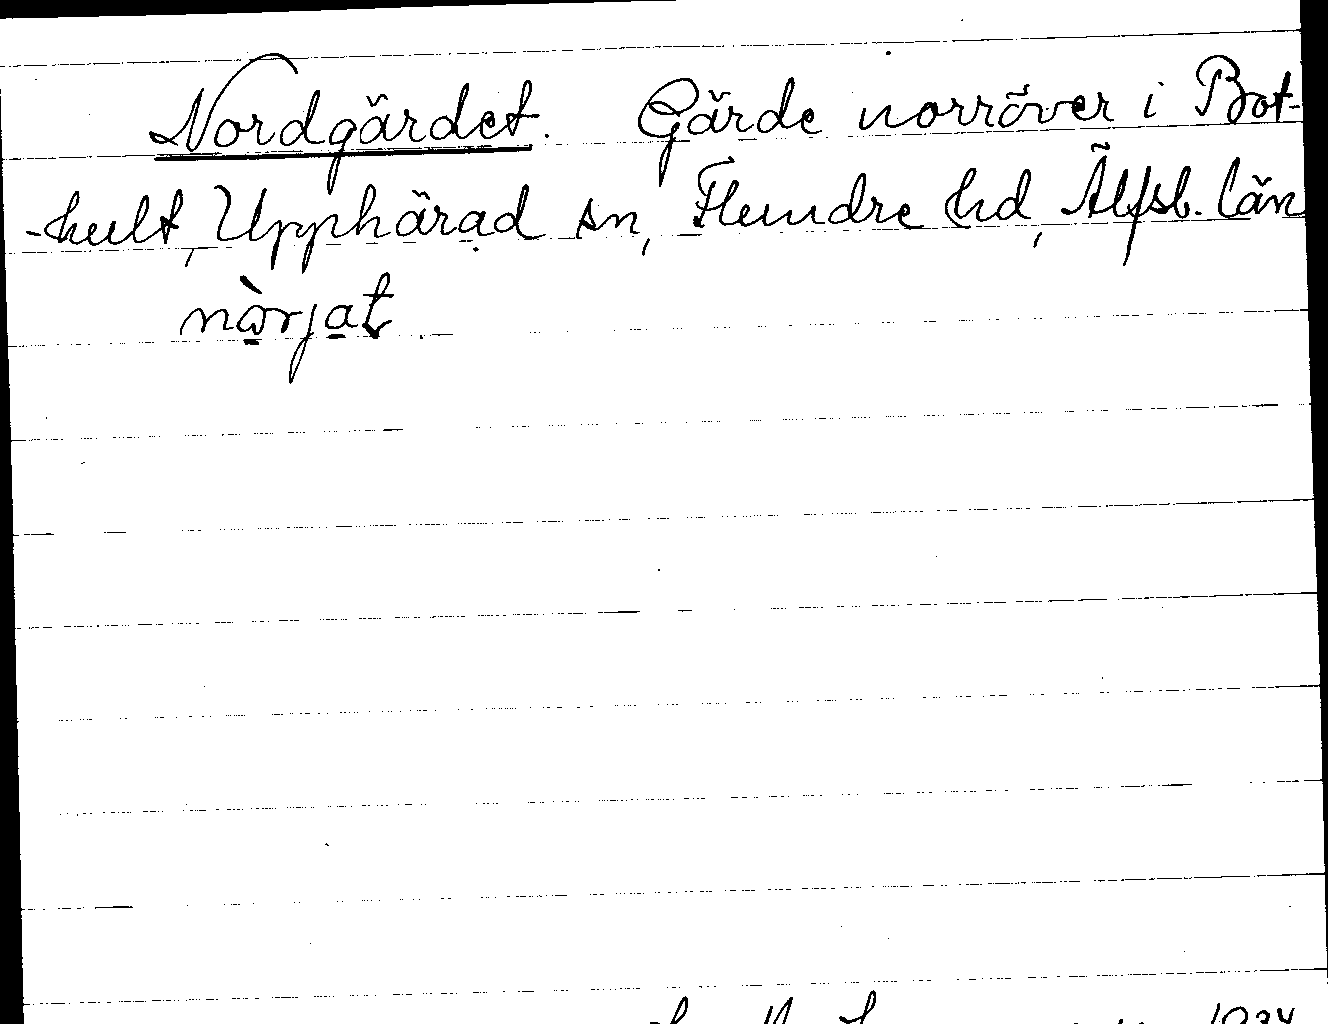 Nordgärdet. Gärde norröver i Bot-
-hult, Upphärad sn, Flundre hd, Älfsb. län
nὼrjat.
1934